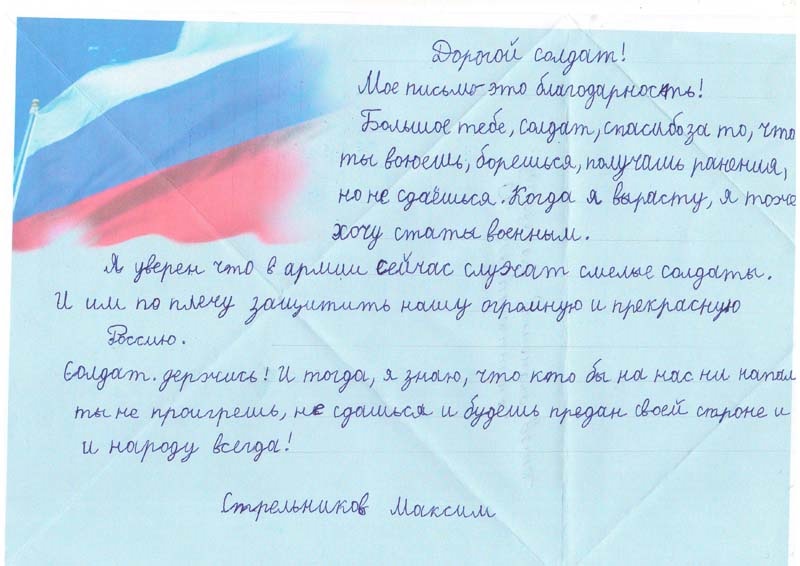 Дорогой солдат!
Мое письмо-это благодарность!
Большое тебе, солдат, спасибо за то, что
ты воюешь, борешься, получашь ранения,
но не сдаёшься. Когда я вырасту, я тоже
хочу статы военным.
Я уверен что в армии сейчас служат смелые солдаты.
И им по плечу защитить нашу огромную и прекрасную
Россию.
Солдат. держись! И тогда, я знаю, что кто бы на нас ни напал
ты не проигрешь, не сдашься и будешь предан своей строне и
и народу всегда!
Стрельников Максим